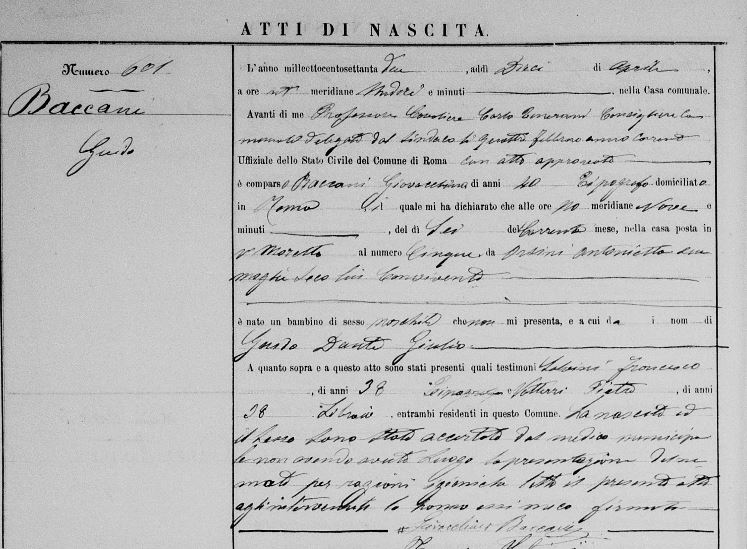 ATTI DI NASCITA.
Numero 601
Baccani
Guido
L'anno millecttocentosettanta , addì Dieci di Aprile ,
a ore ant meridiane Undici e minuti , nella Casa comunale.
Avanti di me Professore Cavaliere Carlo Consigliere Co-
munale delegato dal Sindaco li quattro Febbraio anno corrente
Uffiziale dello Stato Civile del Comune di Roma con atto approvato
è comparso Baccani di anni 40 Tipografo domiciliato
in Roma il quale mi ha dichiarato che alle ore meridiane Nove e
minuti , del dì Sei del Corrente mese, nella casa posta in
v Moretto al numero Cinque, da Orsini Antonietta sua
moglie seco lui convivente
è nato un bambino di sesso maschile che non mi presenta, e a cui dà i nomi di
Guido Dante Giulio
A quanto sopra e a questo atto sono stati presenti quali testimoni Francesco
, di anni 38 e Pietro , di anni
38 Librajo , entrambi residenti in questo Comune. La nascita ed
il sesso sono stati accertati dal medico municipa
le non avendo avuto luogo la presentazione del ne
onato per ragioni igieniche letto il presente atto
agli intervenuti lo hanno essi meco firmato
Baccani